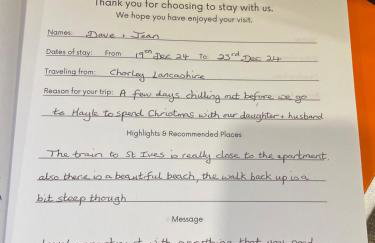 Thank you for choosing to stay with us.
We hope you have enjoyed your visit.
Names: Dave + Jean
Dates of stay: From 19th Dec 24 To: 23rd Dec 24
Traveling from: Chorley Lancashire
Reason for your trip: A few days chilling out before we go
to Hayle to spend Christmas with our daughter + husband
Highlights & Recommended Places
The train to St Ives is really close to the apartment.
also there is a beautiful beach, the walk back up is a
bit steep though
Message